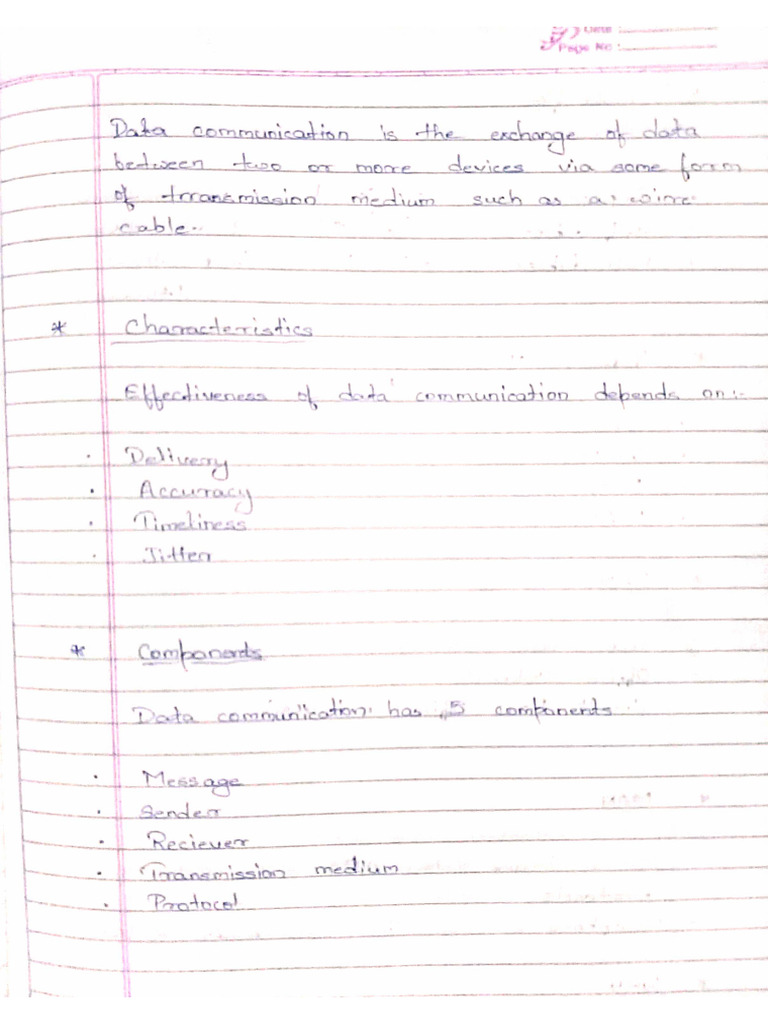 Date :
Page No :
Data communication is the exchange of data
between two or more devices via some form
of transmission medium such as a wire
cable.
* Characteristics
Effectiveness of data communication depends on:-
· Delivery
· Accuracy
· Timeliness
· Jitter
* Components
Data communication has 5 components
· Message
· Sender
· Reciever
· Transmission medium
· Protocol